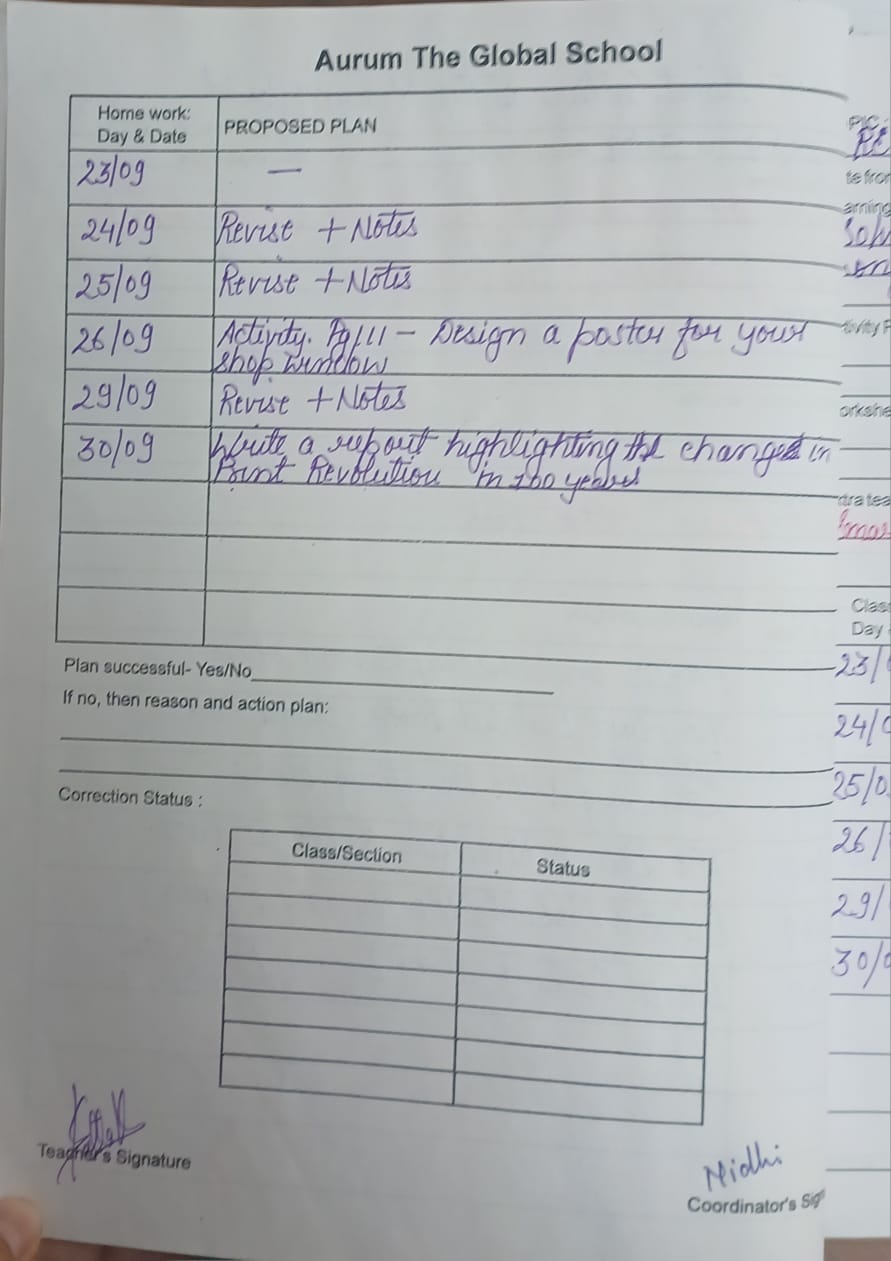 Aurum The Global School
Home work:
Day & Date
PROPOSED PLAN
23/09 —
24/09 Revise + Notes
25/09 Revise + Notes
26/09 Activity. Pg 111 – Design a poster for your
shop window
29/09 Revise + Notes
30/09 Write a report highlighting the changes in
Print Revolution in 200 years
Plan successful- Yes/No
If no, then reason and action plan:
Correction Status :
Class/Section Status
Teacher's Signature
Nidhi
Coordinator's
te from
Clas
Day
23/
24/
25/0
26/
29/
30/